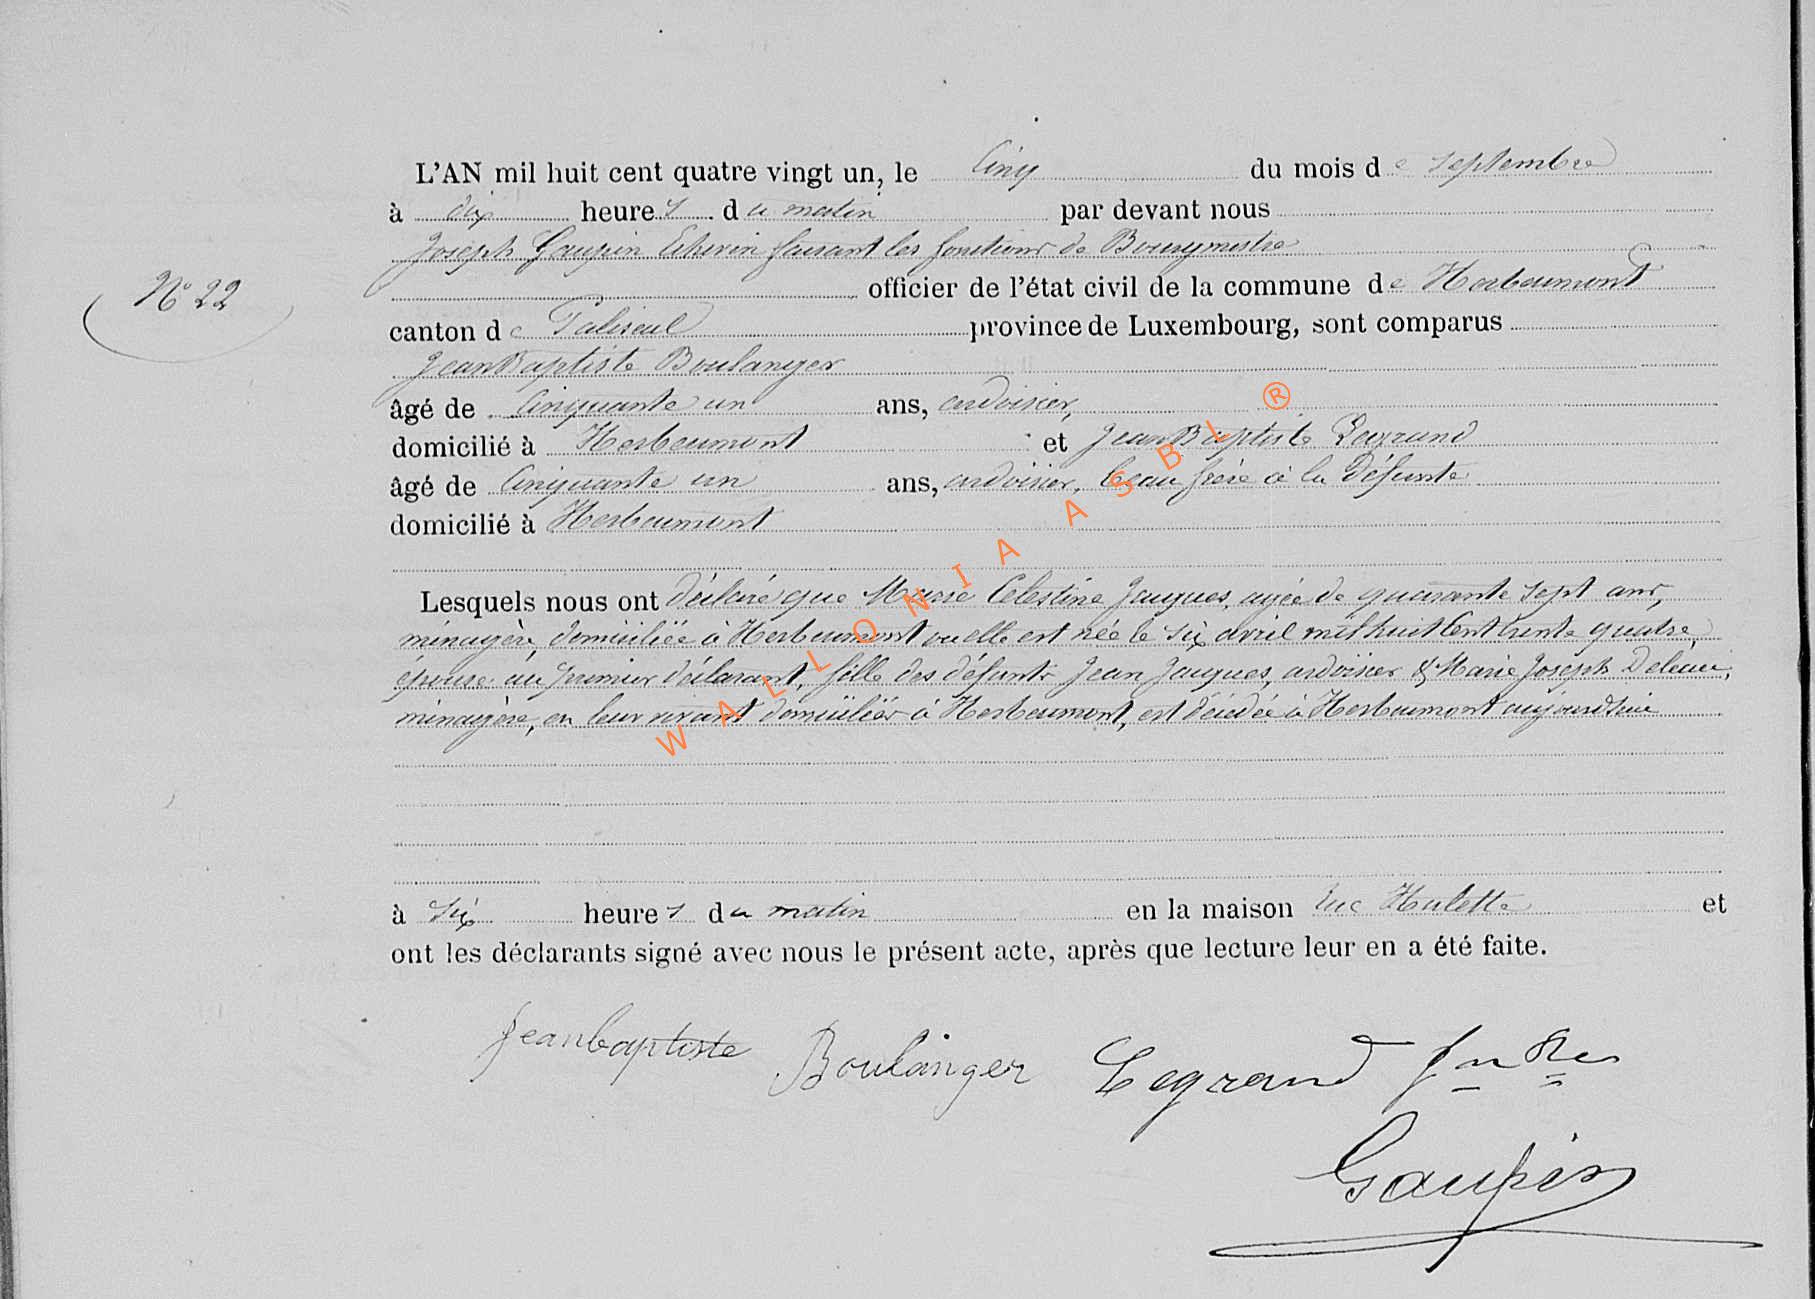 L'AN mil huit cent quatre vingt un, le Cinq du mois de septembre
à dix heures du matin par devant nous
Joseph Gaupin Echevin faisant les fonctions de Bourgmestre
officier de l'état civil de la commune de Herbeumont
N° 22
canton de Paliseul province de Luxembourg, sont comparus
Jean Baptiste Boulanger
âgé de Cinquante un ans, ardoisier,
domicilié à Herbeumont et Jean Baptiste Legrand
âgé de Cinquante un ans, ardoisier, beau frère à la Défunte
domicilié à Herbeumont
Lesquels nous ont Déclaré que Marie Celestine Jacques, agée de quarante sept ans,
ménagère, domiciliée à Herbeumont ou elle est née le six avril mil huit Cent trente quatre,
épouse au premier Déclarant, fille des défunts Jean Jacques, ardoisier & Marie Joseph
ménagère, en leur vivant domiciliés à Herbeumont, est Décédée à Herbeumont aujourd'hui
à six heures du matin en la maison rue Hulette et
ont les déclarants signé avec nous le présent acte, après que lecture leur en a été faite.
Jeanbaptiste Boulanger Legrand Jn Bte
Gaupin
WALLONIA ASBL ®